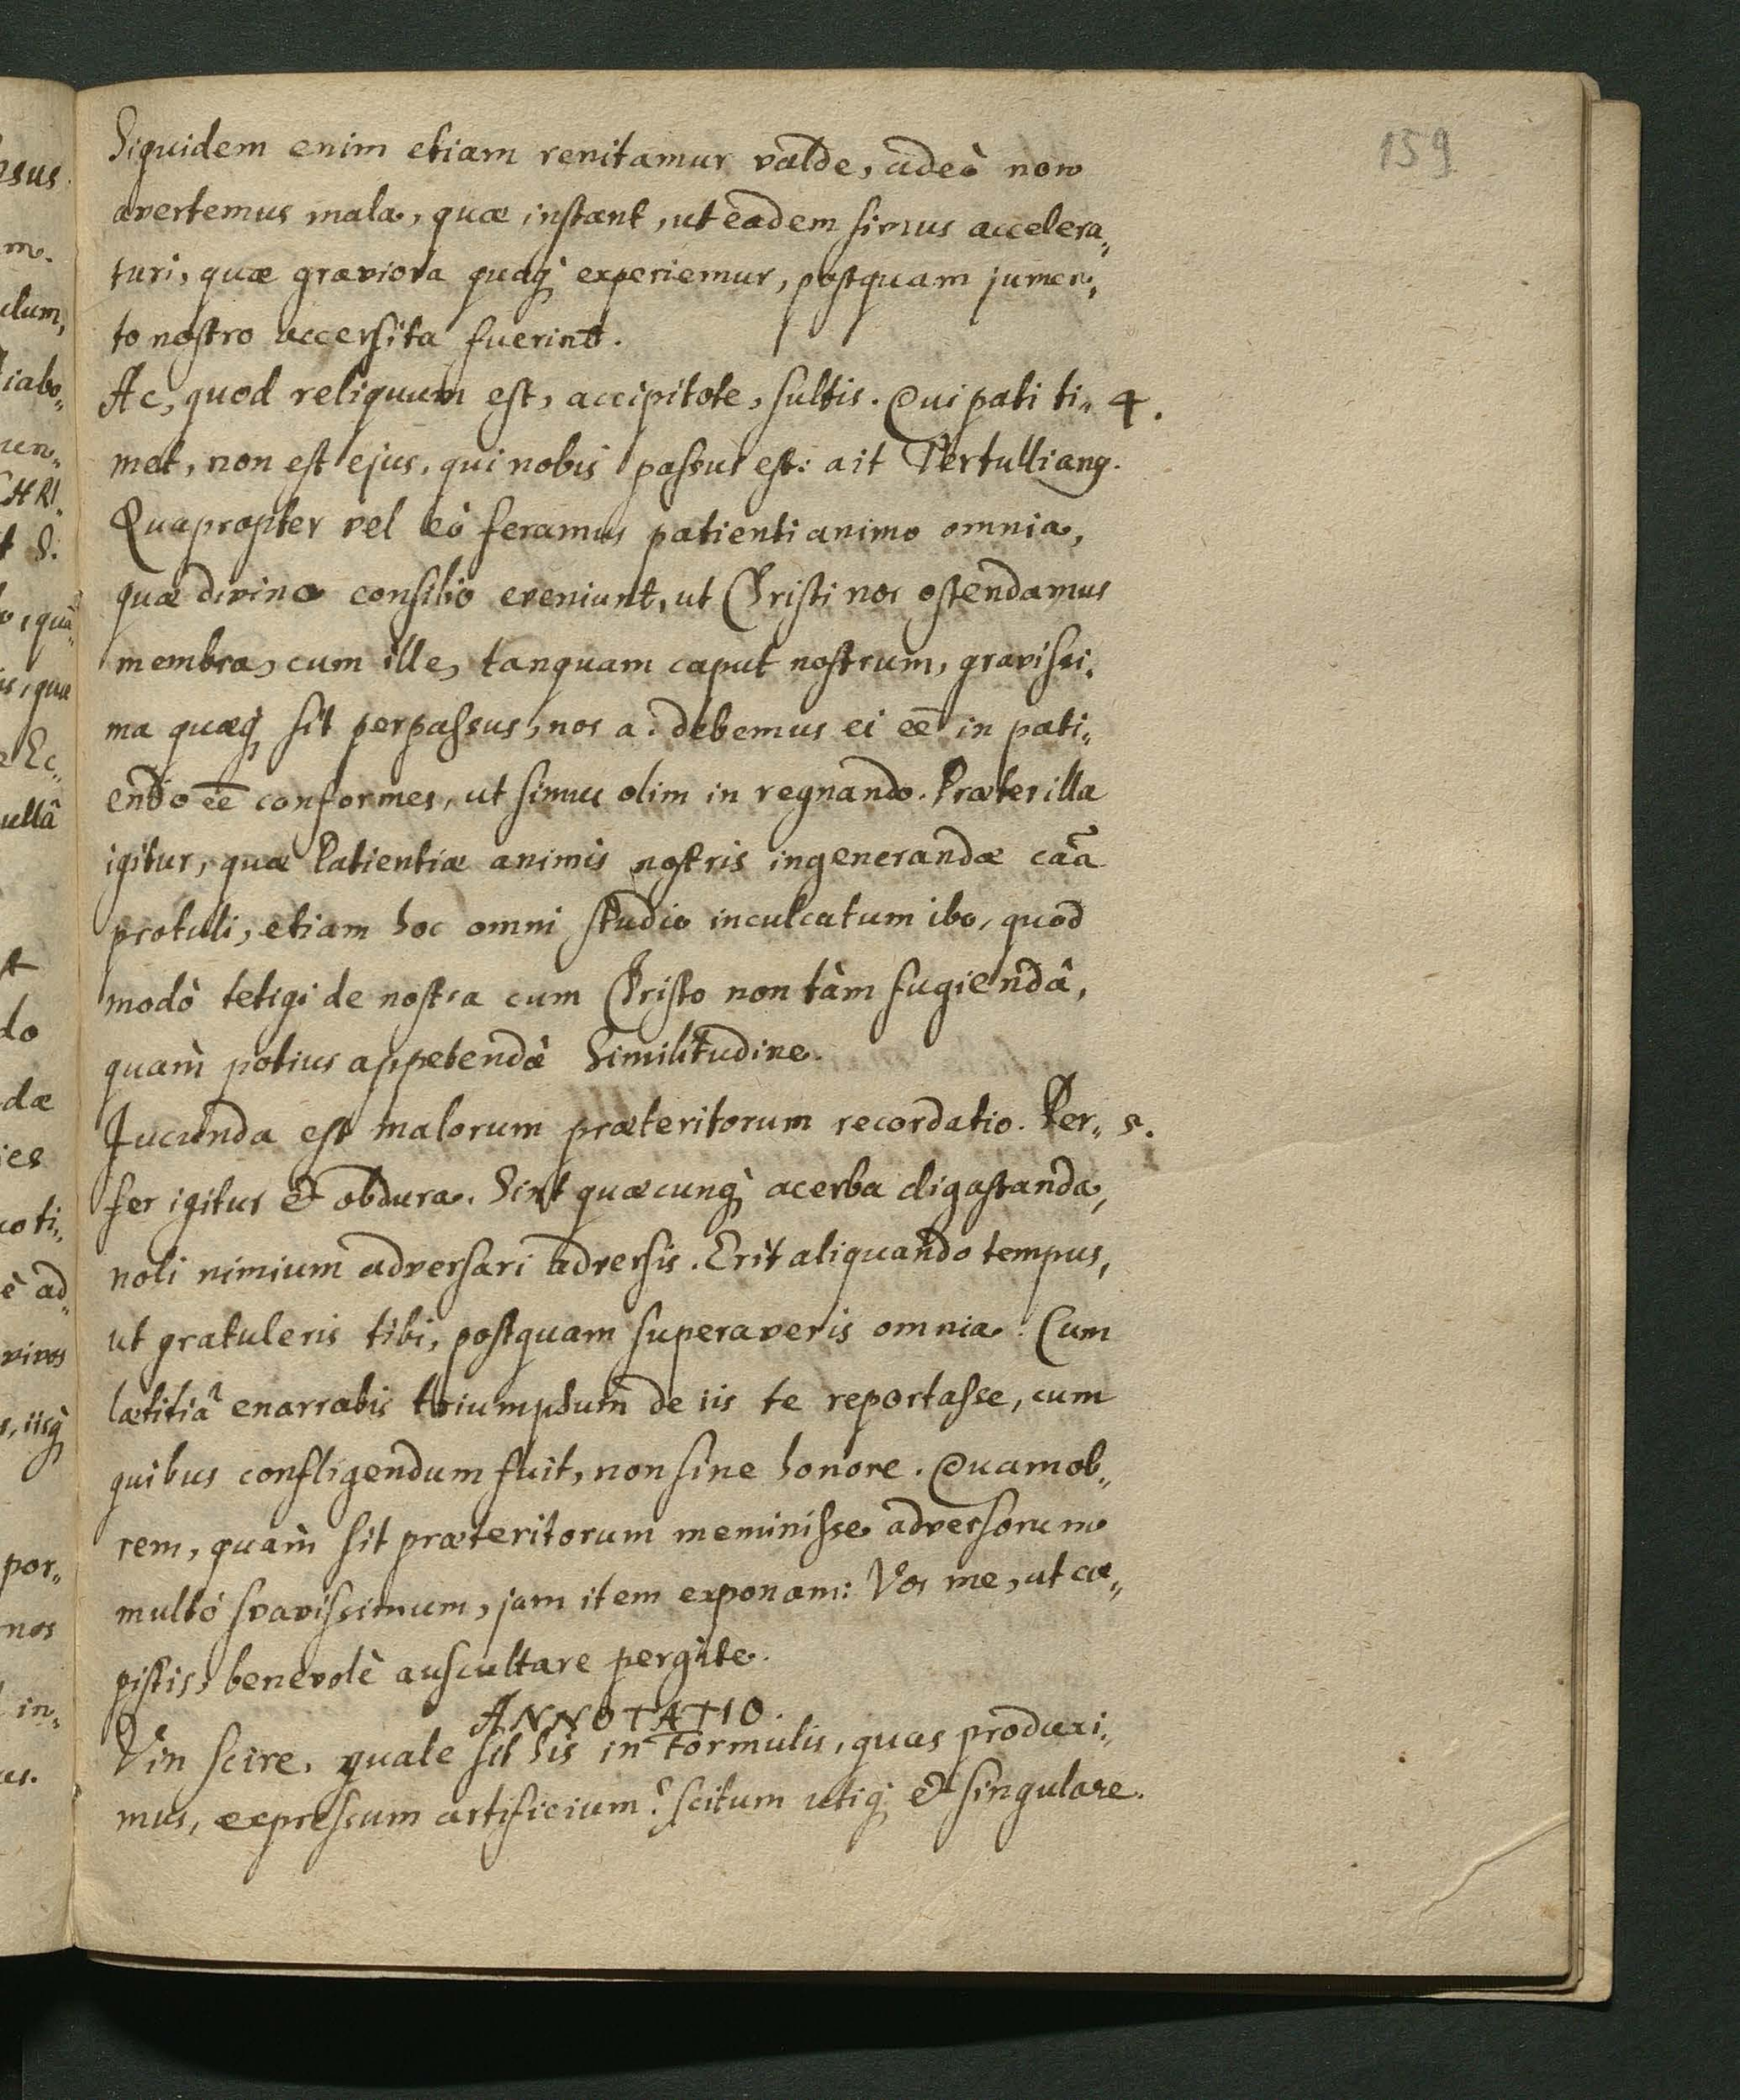 159
Siquidem enim etiam renitamur valde, adeò non
avertemus mala, quæ instant, ut eadem simus accelera„
turi, quæ graviora quæq; experiemur, postquam jumen„
to nostro accersita fuerint.
Ac, quod reliquum est, accipitote, sultis. Qui pati ti„ 4.
met, non est ejus, qui nobis passus est: ait Tertullian9.
Quapropter vel eò feramus patienti animo omnia,
quæ divino consilio eveniunt, ut Christi nos ostendamus
membra, cum ille, tanquam caput nostrum, gravissi„
ma quæq; sit perpassus, nos a: debemus ei eē in pati„
endo eē conformes, ut simus olim in regnando. Præter illa
igitur, quæ Patientiæ animis nostris ingenerandæ caã
protuli, etiam hoc omni studio inculcatum ibo, quod
modò tetigi de nostra cum Christo non tàm fugiendâ,
quàm potius appetendâ Similitudine.
Jucunda est malorum præteritorum recordatio. Per„ 5.
fer igitur & obdura. Sint quæcunq; acerba digastanda,
noli nimium adversari adversis. Erit aliquando tempus,
ut gratuleris tibi, postquam superaveris omnia. Cum
lætitiâ enarrabis triumphum de iis te reportasse, cum
quibus confligendum fuit, non sine honore. Quamob„
rem, quàm sit præteritorum meminisse adversorum
multó svavissimum, jam item exponam: Vos me, ut cæ„
pistis, benevolè auscultare pergite.
ANNOTATIO.
Vin scire, quale sit his in Formulis, quas produxi„
mus, expressum artificium? scitum utiq; & singulare.